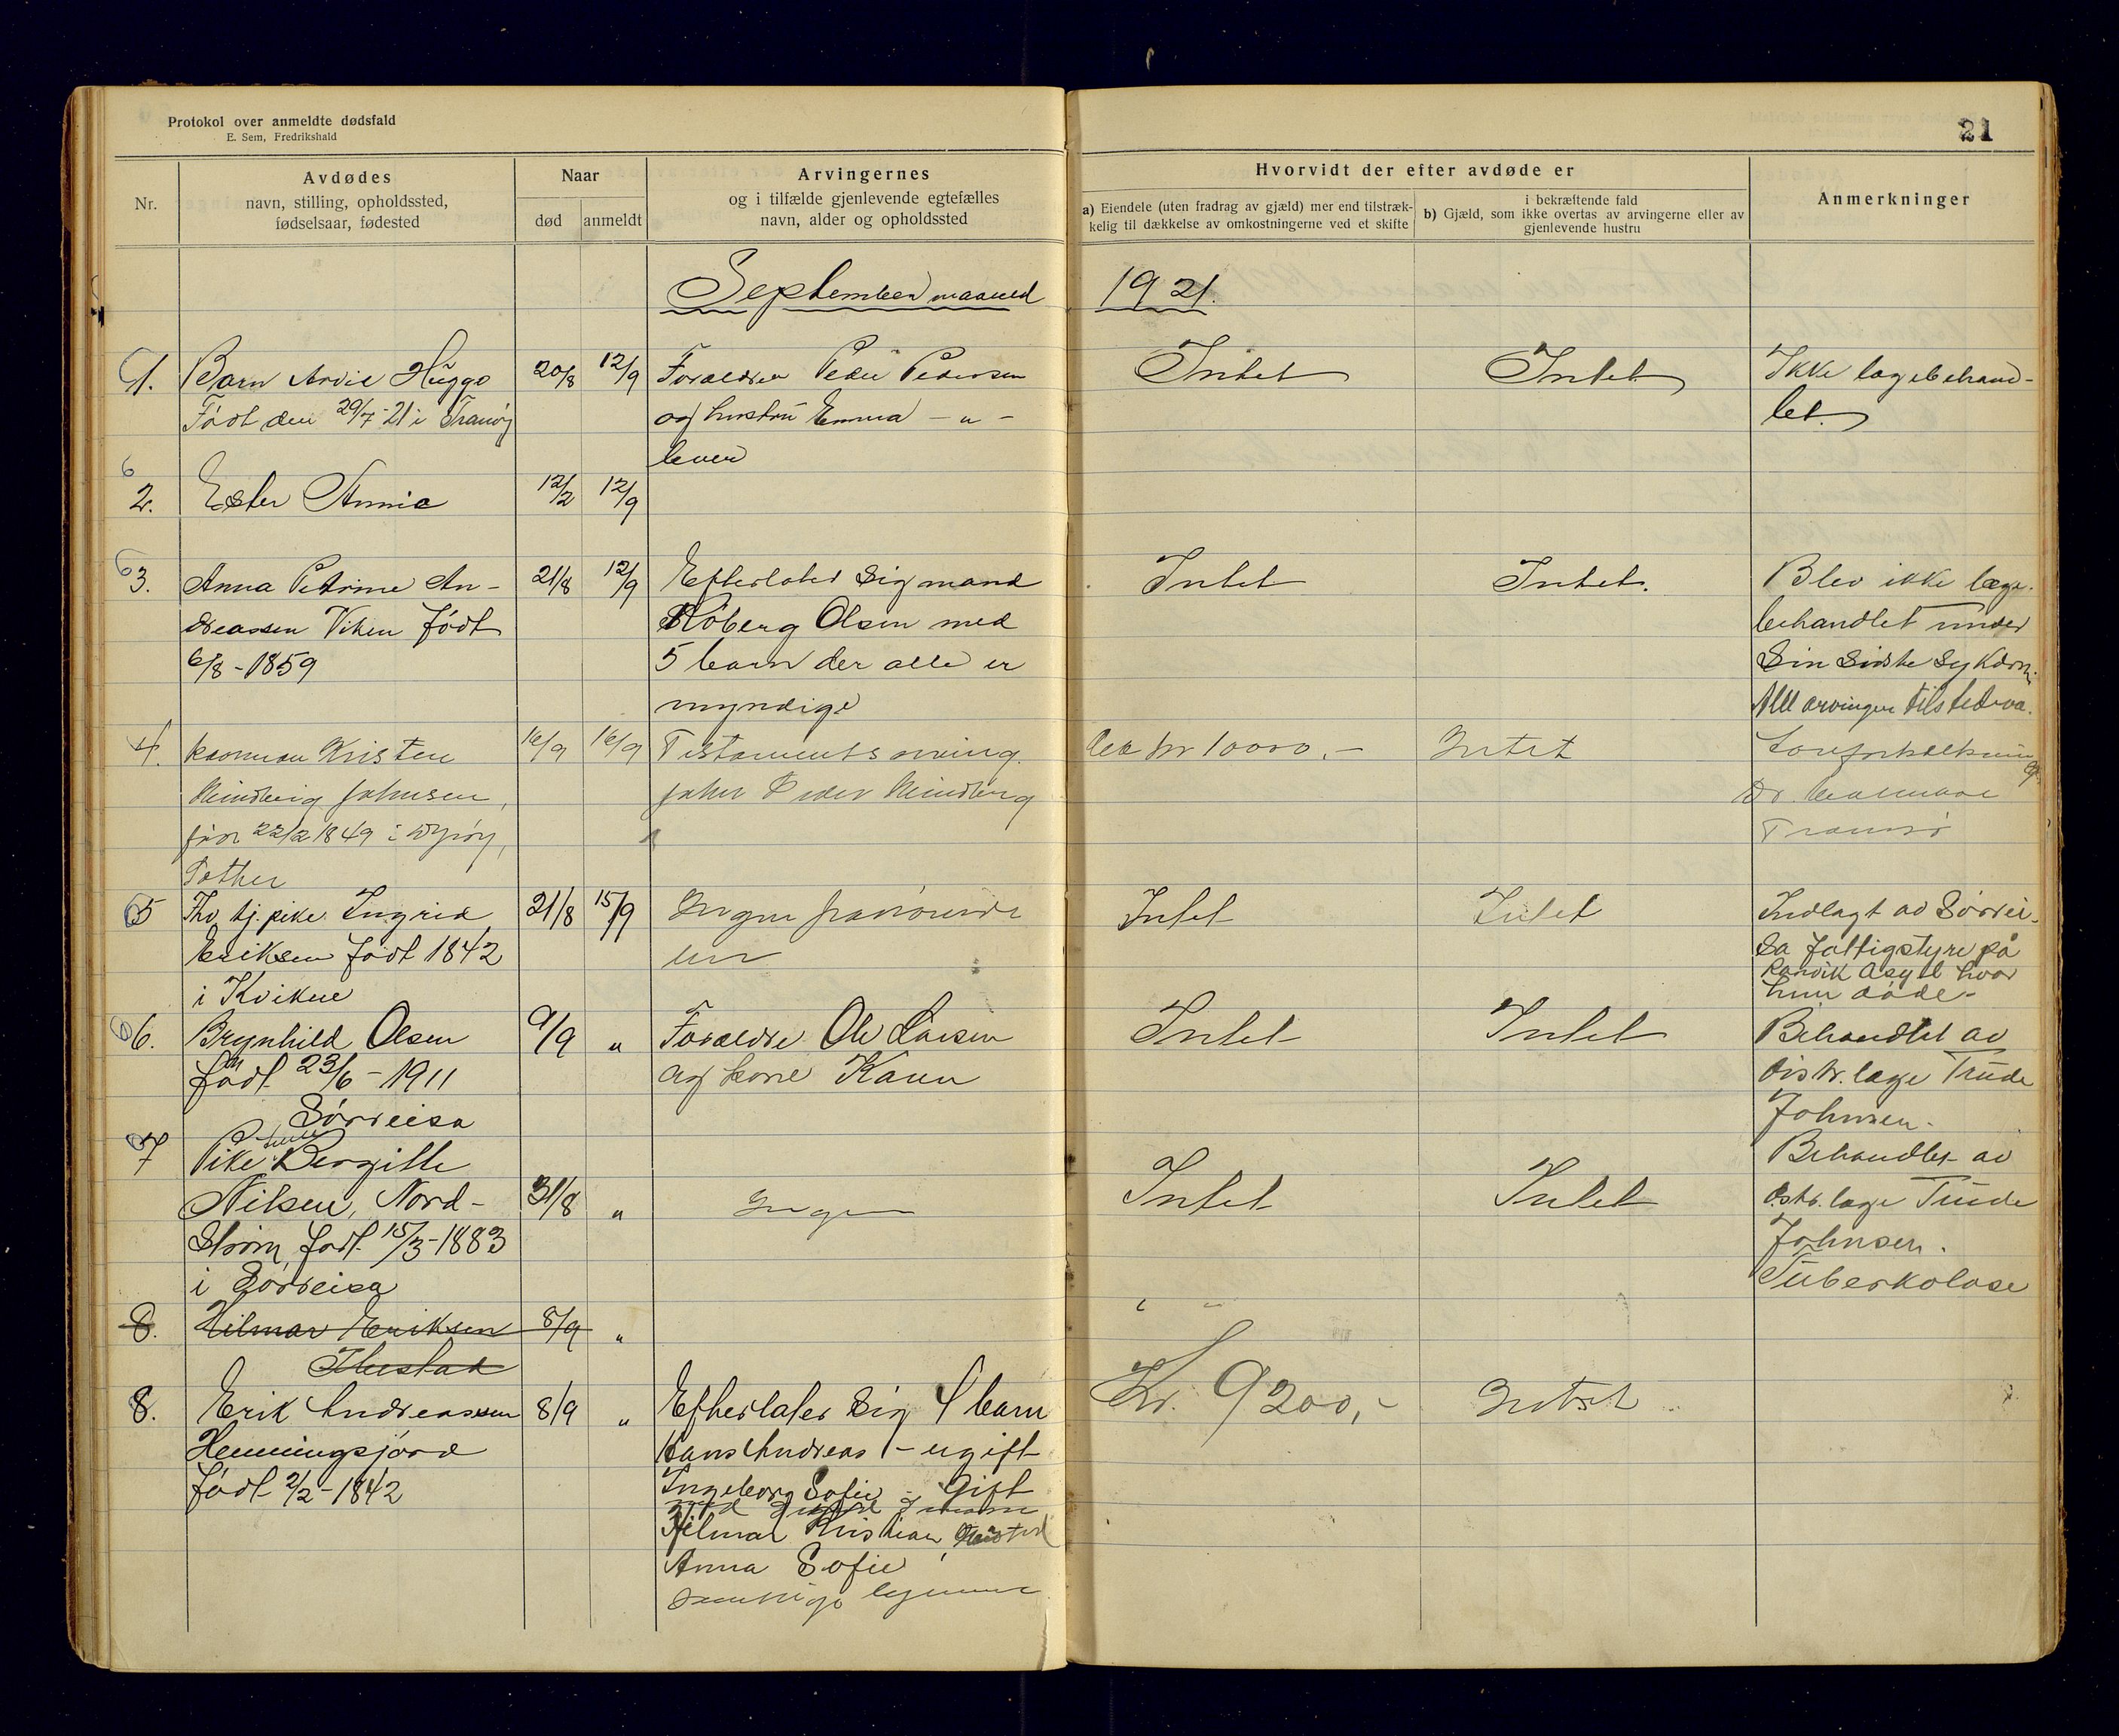 Protokol over anmeldte dødsfald
E. Sem, Fredrikshald
21
Nr.
Avdødes
navn, stilling, opholdssted,
fødselsaar, fødested
Naar
død
anmeldt
Arvingernes
og i tilfælde gjenlevende egtefælles
navn, alder og opholdssted
Hvorvidt der efter avdøde er
a) Eiendele (uten fradrag av gjæld) mer end tilstræk-
kelig til dækkelse av omkostningerne ved et skifte
i bekræftende fald
b) Gjæld, som ikke overtas av arvingerne eller av
gjenlevende hustru
Anmerkninger
September maaned 1921.
1. Barn Arvid Hüggo 20/8 12/9 Forældre Peder Pedersen Intet Intet Ikke lægebehand-
Født den 29/7-21 i Tranøy og hustrü Emma - " - let.
lever
2. Ester Annie 12/2 12/9
3. Anna Petrine An- 21/8 12/9 Efterlater sig mand Intet Intet. Blev ikke læge-
dreassen Viken født Roberg Olsen med behandlet under
6/8-1859 5 barn der alle er sin sidste sykdom.
myndige All arvinger tilstede
4. Kristen 16/9 16/9 Testaments arving kr 10000,- Intet
Johnsen, Peder
født 22/2 1849 i Dyrøy, Dr.
Tromsø
5 Fhv. tj. pike Ingrid 21/8 15/9 Ingen Intet Intet Indlagt av Sørrei-
Eriksen født 1842 sa fattigstyre på
i Kvikne asyl hvor
hun døde-
6. Brynhild Olsen 9/9 " Forældre Ole Larsen Intet Intet Behandlet av
født 23/6-1911 og kone Karen distr. læge Trüde
Sørreisa Johnsen.
7 Pike Bergitte Behandlet av
Nilsen, Nord- 31/8 " Ingen Intet Intet distr. læge Trüde
strøm, født 15/3-1883 Johnsen.
i Sørreisa Tuberkolose
8. Hilmar Eriksen 8/9 "
8. Erik Andreassen 8/9 " Efterlater sig 4 barn Kr. 9200,- Intet
Henningsjord Hans Andreas - ugift
født 2/2-1842 Ingeborg Sofie - Gift
Hilmar Kristian
Anna Sofie